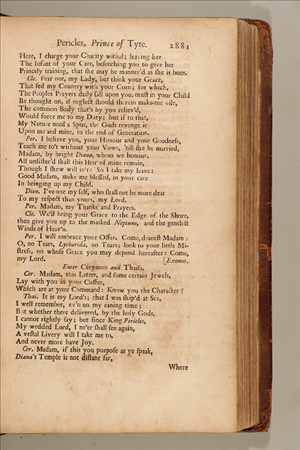 Pericles, Prince of Tyre. 2881
Here, I charge your Charity withal; leaving her
The Infant of your Care, beseeching you to give her
Princely training, that she may be manner'd as she is born.
Cle. Fear not, my Lady, but think your Grace,
That fed my Country with your Corn; for which,
The Peoples Prayers daily fall upon you, must in your Child
Be thought on, if neglect should therein make me vile,
The common Body that's by you reliev'd,
Would force me to my Duty: but if to that,
My Nature need a Spur, the Gods revenge it
Upon me and mine, to the end of Generation.
Per. I believe you, your Honour and your Goodness,
Teach me to't without your Vows, 'till she be married,
Madam, by bright Diana, whom we honour,
All unsister'd shall this Heir of mine remain,
Though I shew will in't: So I take my leave:
Good Madam, make me blessed, in your care
In bringing up my Child.
Dion. I've one my self, who shall not be more dear
To my respect than yours, my Lord.
Per. Madam, my Thanks and Prayers.
Cle. We'll bring your Grace to the Edge of the Shore,
then give you up to the masked Neptune, and the gentlest
Winds of Heav'n.
Per. I will embrace your Offer. Come, dearest Madam:
O, no Tears, Lychorida, no Tears; look to your little Mi-
stress, on whose Grace you may depend hereafter: Come,
my Lord. [Exeunt.
Enter Cerymon and Thaisa.
Cer. Madam, this Letter, and some certain Jewels,
Lay with you in your Coffer,
Which are at your Command: Know you the Character?
Thai. It is my Lord's; that I was ship'd at Sea,
I well remember, ev'n on my eaning time:
But whether there delivered, by the holy Gods,
I cannot rightly say; but since King Pericles,
My wedded Lord, I ne'er shall see again,
A vestal Livery will I take me to,
And never more have Joy.
Cer. Madam, if this you purpose as ye speak,
Diana's Temple is not distant far,
Where